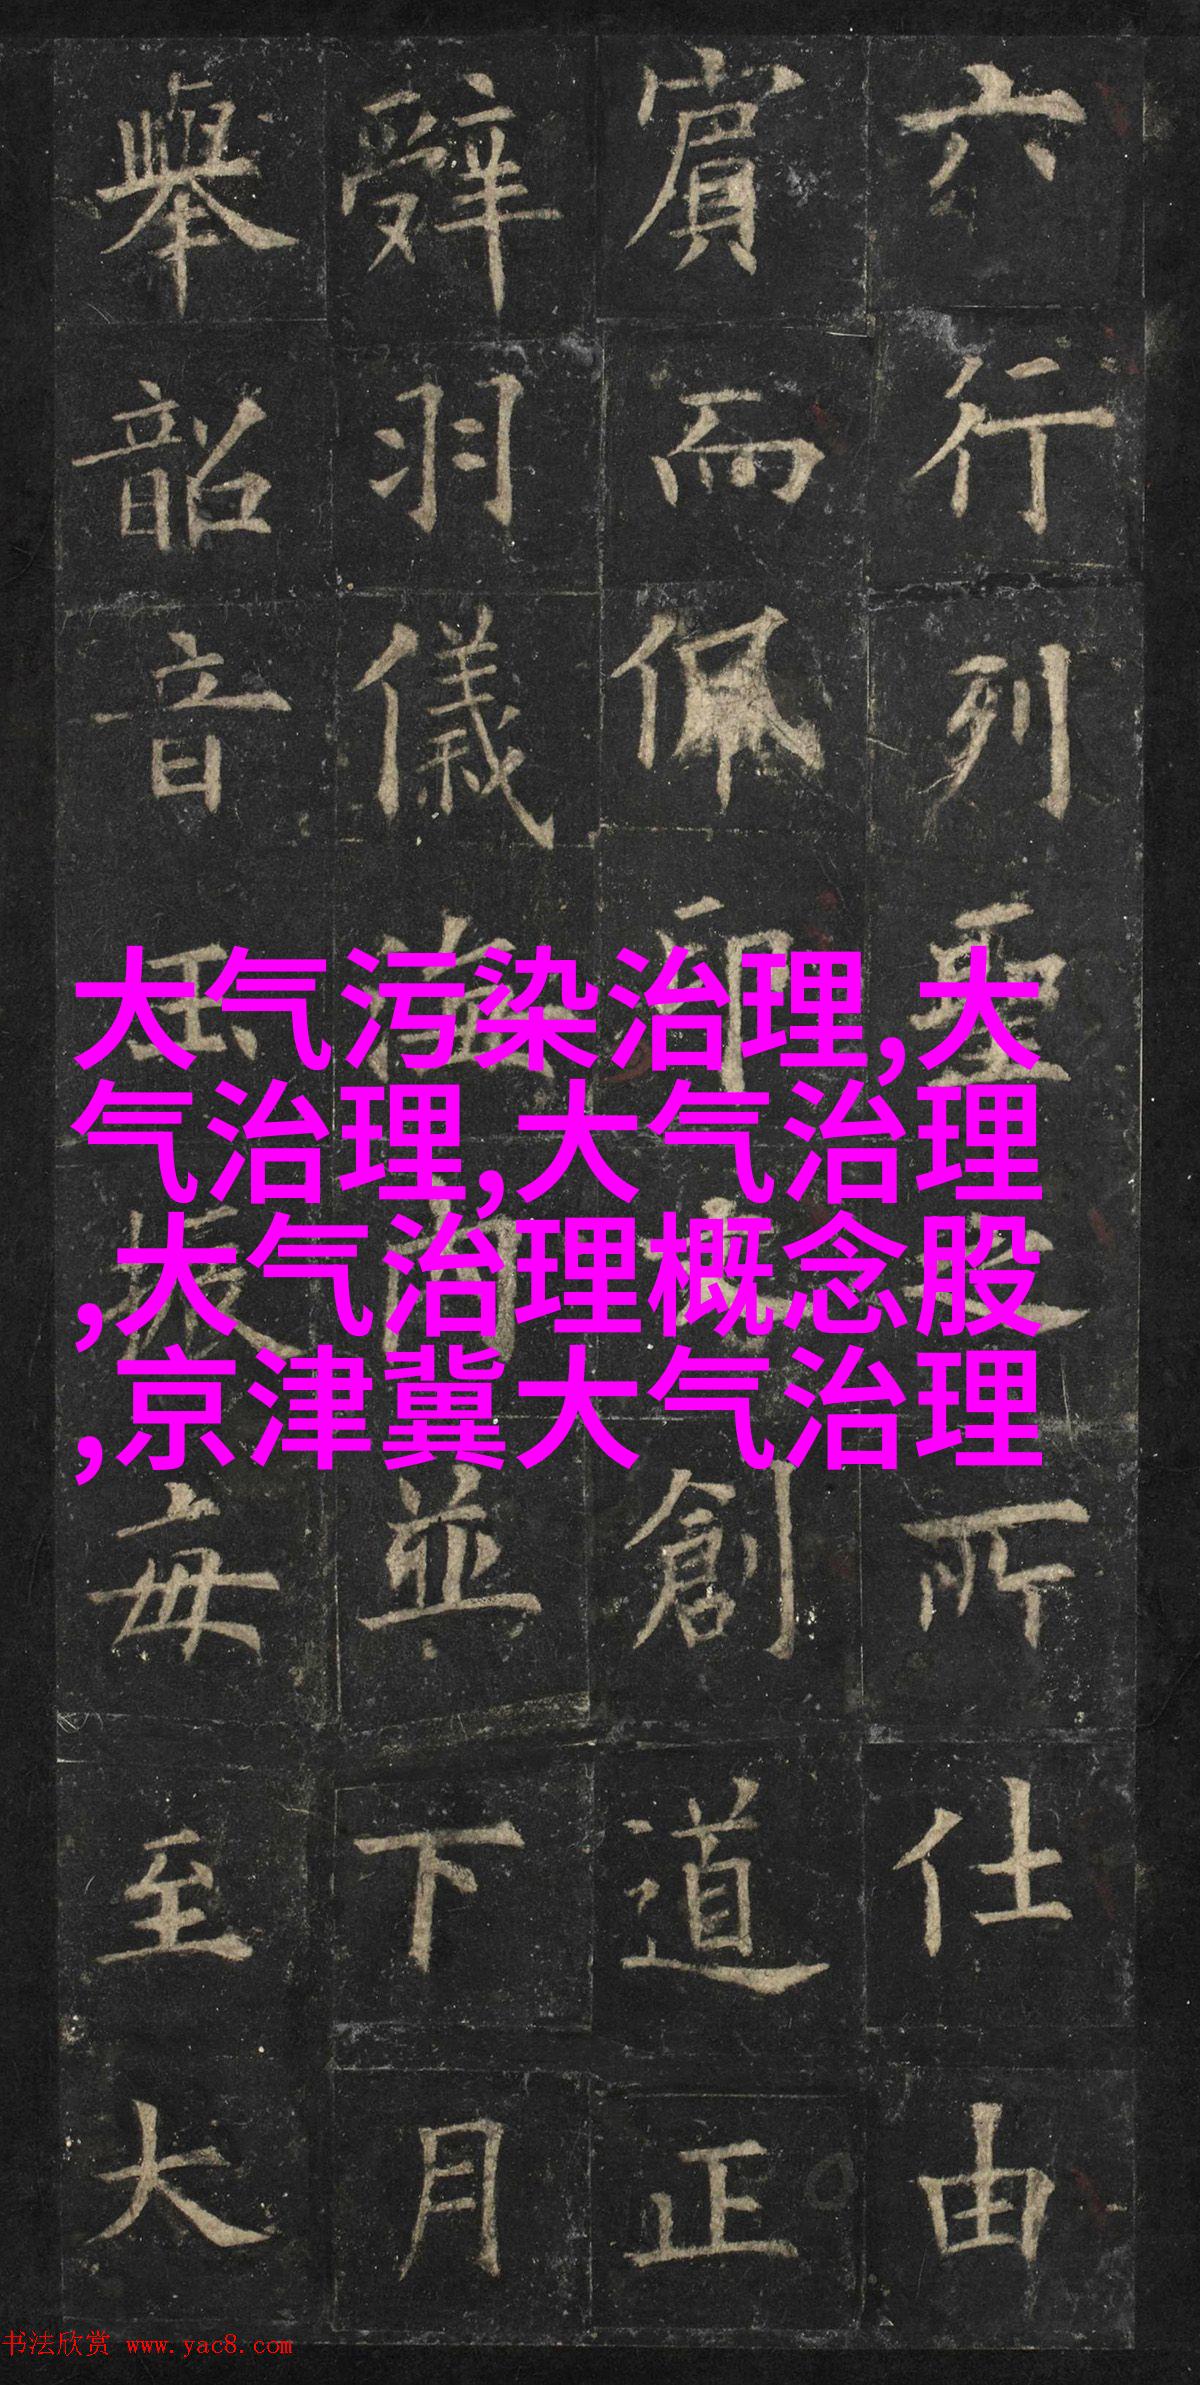 六行列聖所仕由
賔而佩創道正
辤羽儀海内並下月
舉韶音振毎至大
大气污染治理,大
气治理,大气治理
,大气治理概念股
,京津冀大气治理
书法欣赏 www.yac8.com